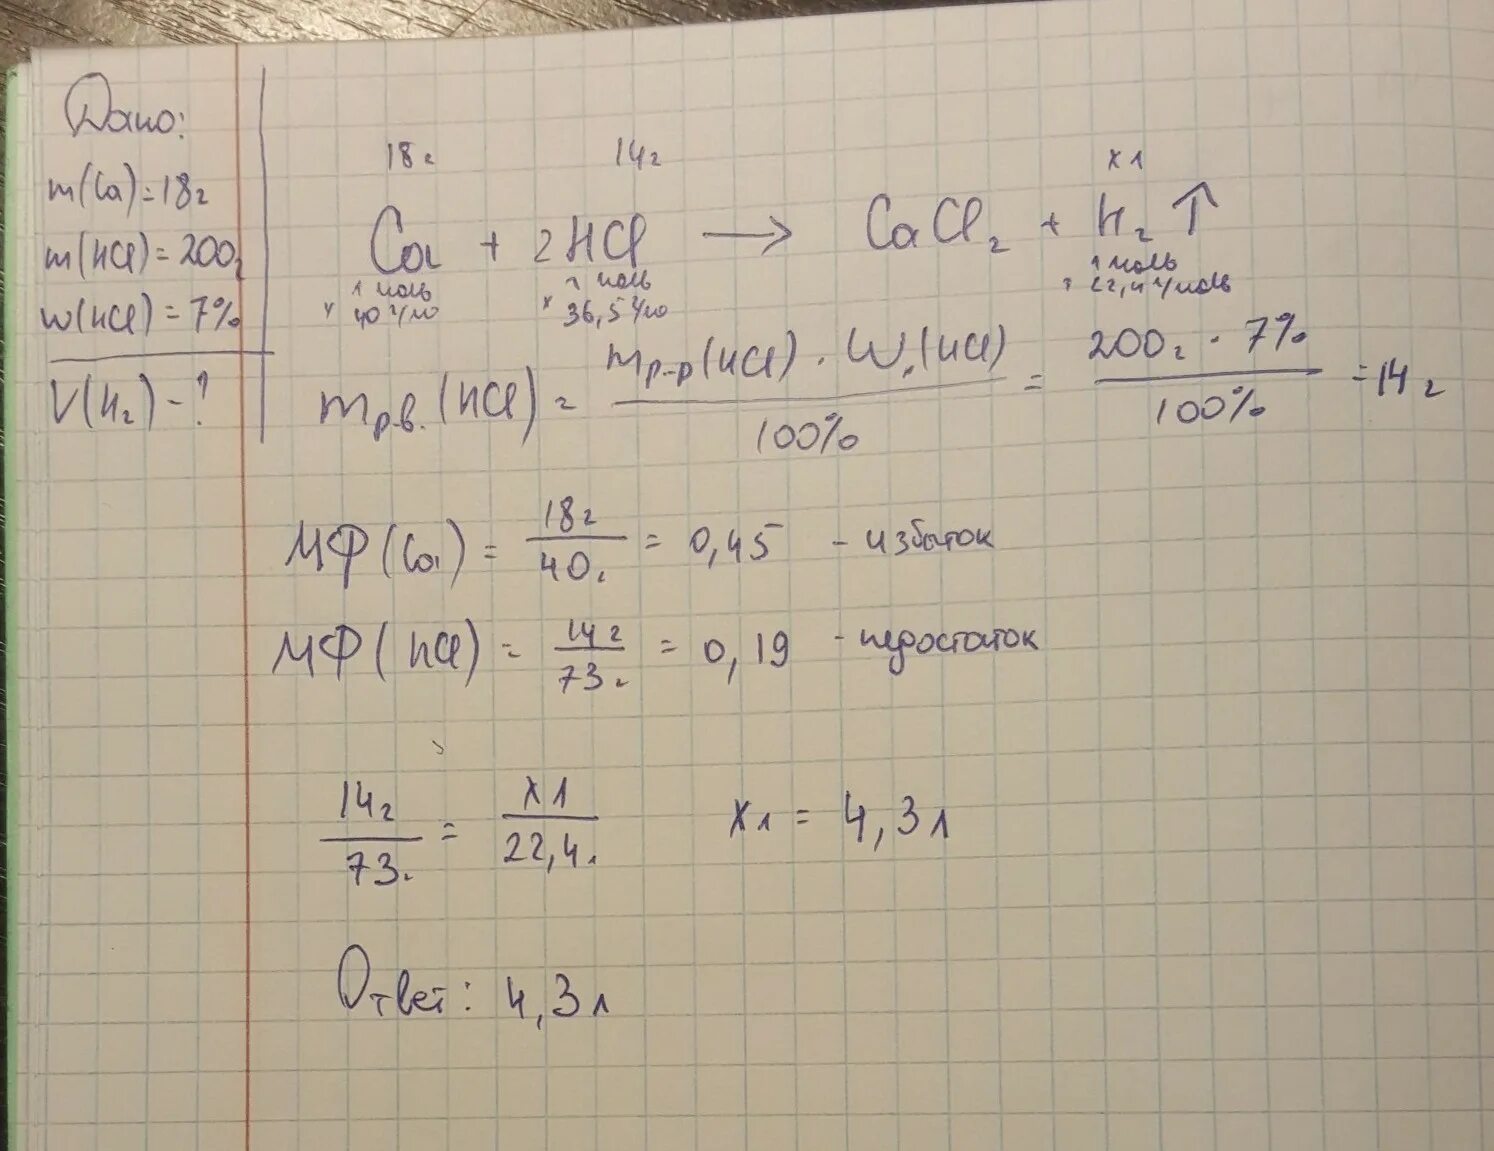 Дано:
m(Ca)=18г
m(HCl)=200г
w(HCl)=7%
V(H₂)-?
18г 14г x л
Ca + 2HCl → CaCl₂ + H₂↑
1 моль 2 моль 1 моль
40 г/мо 36,5 г/мо 22,4 л/моль
mр.в.(HCl) = mр-р(HCl) · W(HCl) / 100% = 200г · 7% / 100% = 14г
МФ(Ca) = 18г / 40г = 0,45 - избыток
МФ(HCl) = 14г / 73г = 0,19 - недостаток
14г / 73г = x л / 22,4л x л = 4,3л
Ответ: 4,3л